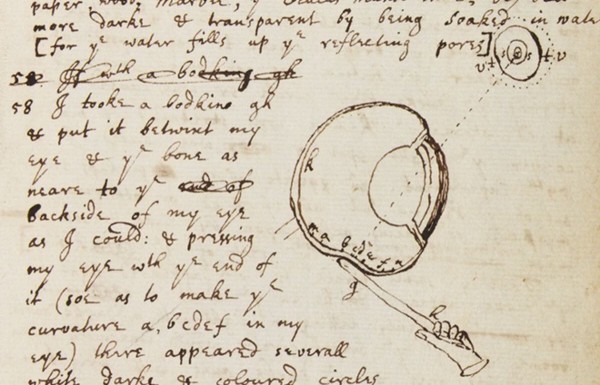 paper, wood, Marble, ye
more darke & transparent by being soaked in water
[for ye water fills up ye reflecting pores]
58 If wth a bodking gh
58 I tooke a bodkine gh
& put it betwixt my
eye & ye bone as
neare to ye end of
backside of my eye
as I could: & pressing
my eye wth ye end of
it (soe as to make ye
curvature a, bcdef in my
eye) there appeared severall
white darke & coloured circles
s s
v t t v
k
m a b c d e f n
g
h